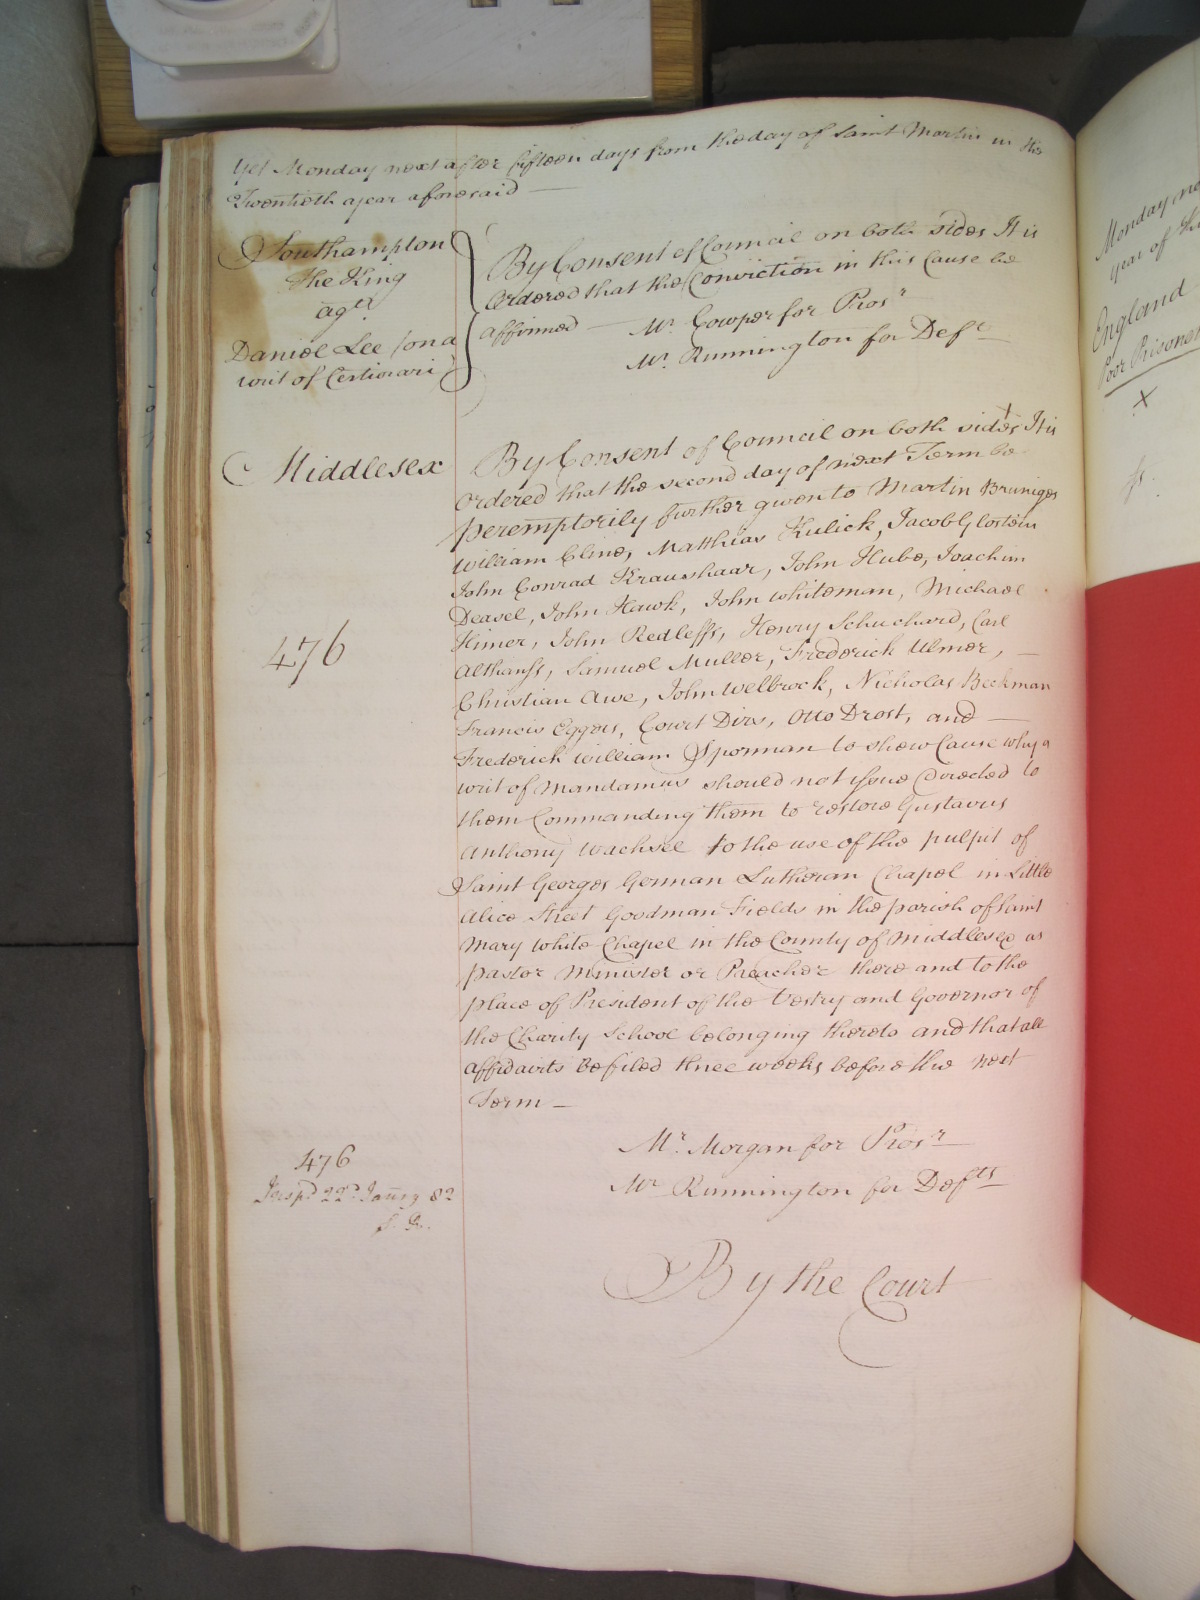 Yet Monday next after fifteen days from the day of Saint Martin in the
Twentieth year aforesaid —
Southampton
The King
agt
Daniel Lee /on a
writ of Certiorari
By Consent of Council on both sides It is
Ordered that the Conviction in this Cause be
affirmed — Mr. Cowper for Prosr
Mr. Runnington for Deft
Middlesex
By Consent of Council on both sides It is
Ordered that the second day of next Term be
peremptorily further given to Martin Bruniges
William Cline, Matthias Kulick, Jacob Glostein
John Conrad Kraushaar, John Hube, Joachim
Deasel, John Hawk, John Whiteman, Michael
Himer, John Redleffs, Henry Schuchard, Carl
Althanss, Samuel Muller, Frederick Ulmer, —
Christian Awe, John Welbrock, Nicholas Beckman
Francis Eggers, Court Dirs, Otto Drost, and —
Frederick William Sporman to shew Cause why a
writ of Mandamus should not issue Directed to
them Commanding them to restore Gustavus
Anthony Wachsel to the use of the pulpit of
Saint Georges German Lutheran Chapel in Little
Alice Street Goodman Fields in the parish of Saint
Mary White Chapel in the County of Middlesex as
pastor Minister or Preacher there and to the
place of President of the Vestry and Governor of
the Charity School belonging thereto and that all
affidavits be filed three weeks before the next
Term —
476
Mr. Morgan for Prosr
Mr Runnington for Defts
476
22d Janry 82
By the Court
Monday
year of the
England
Poor Prisoners
X